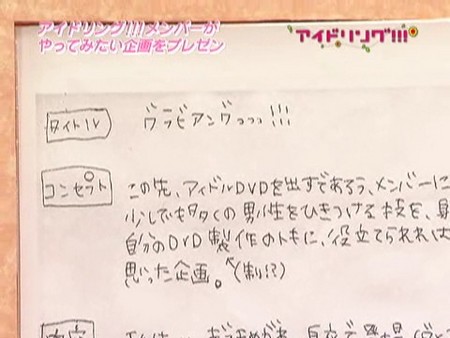 アイドリング!!!メンバーが
やってみたい企画をプレゼン
アイドリング!!!
タイトル
グラビアングっっっ!!!
コンセプト
この先、アイドルDVDを出すであろう、メンバーに
少しでも多くの男性をひきつける技を、身
自分のDVD製作のトキに、役立てられれば
思った企画。
(制!?)
内容